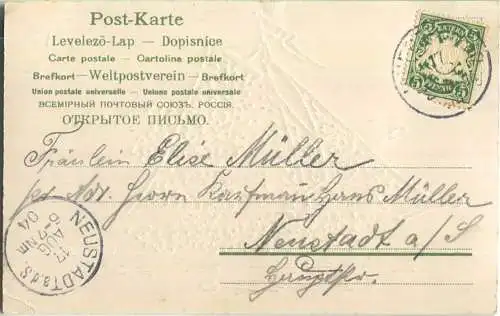 Post-Karte
Levelezö-Lap — Dopisnice
Carte postale — Cartolina postale
Brefkort — Weltpostverein — Brefkort
Union postale universelle — Unione postale universale
ВСЕМІРНЫЙ ПОЧТОВЫЙ СОЮЗЪ. РОССІЯ.
ОТКРЫТОЕ ПИСЬМО.
Fräulein Elise Müller
per Adr. Herrn Kaufmann Hans Müller
Neustadt a/S
Hauptstr.
NEUSTADT a.d.S
17.
AUG
6-7 Nm
04
5
5
PFENNIG